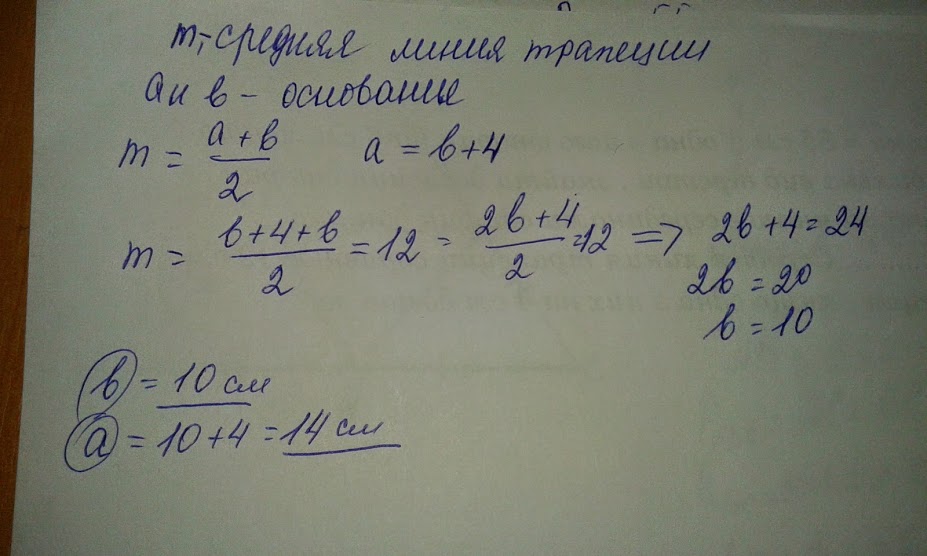 m,-средняя линия трапеции
a и b - основание
m = (a+b)/2 a = b+4
m = (b+4+b)/2 = 12 = (2b+4)/2 = 12 => 2b+4=24
2b = 20
b = 10
b = 10 см
a = 10+4 = 14 см